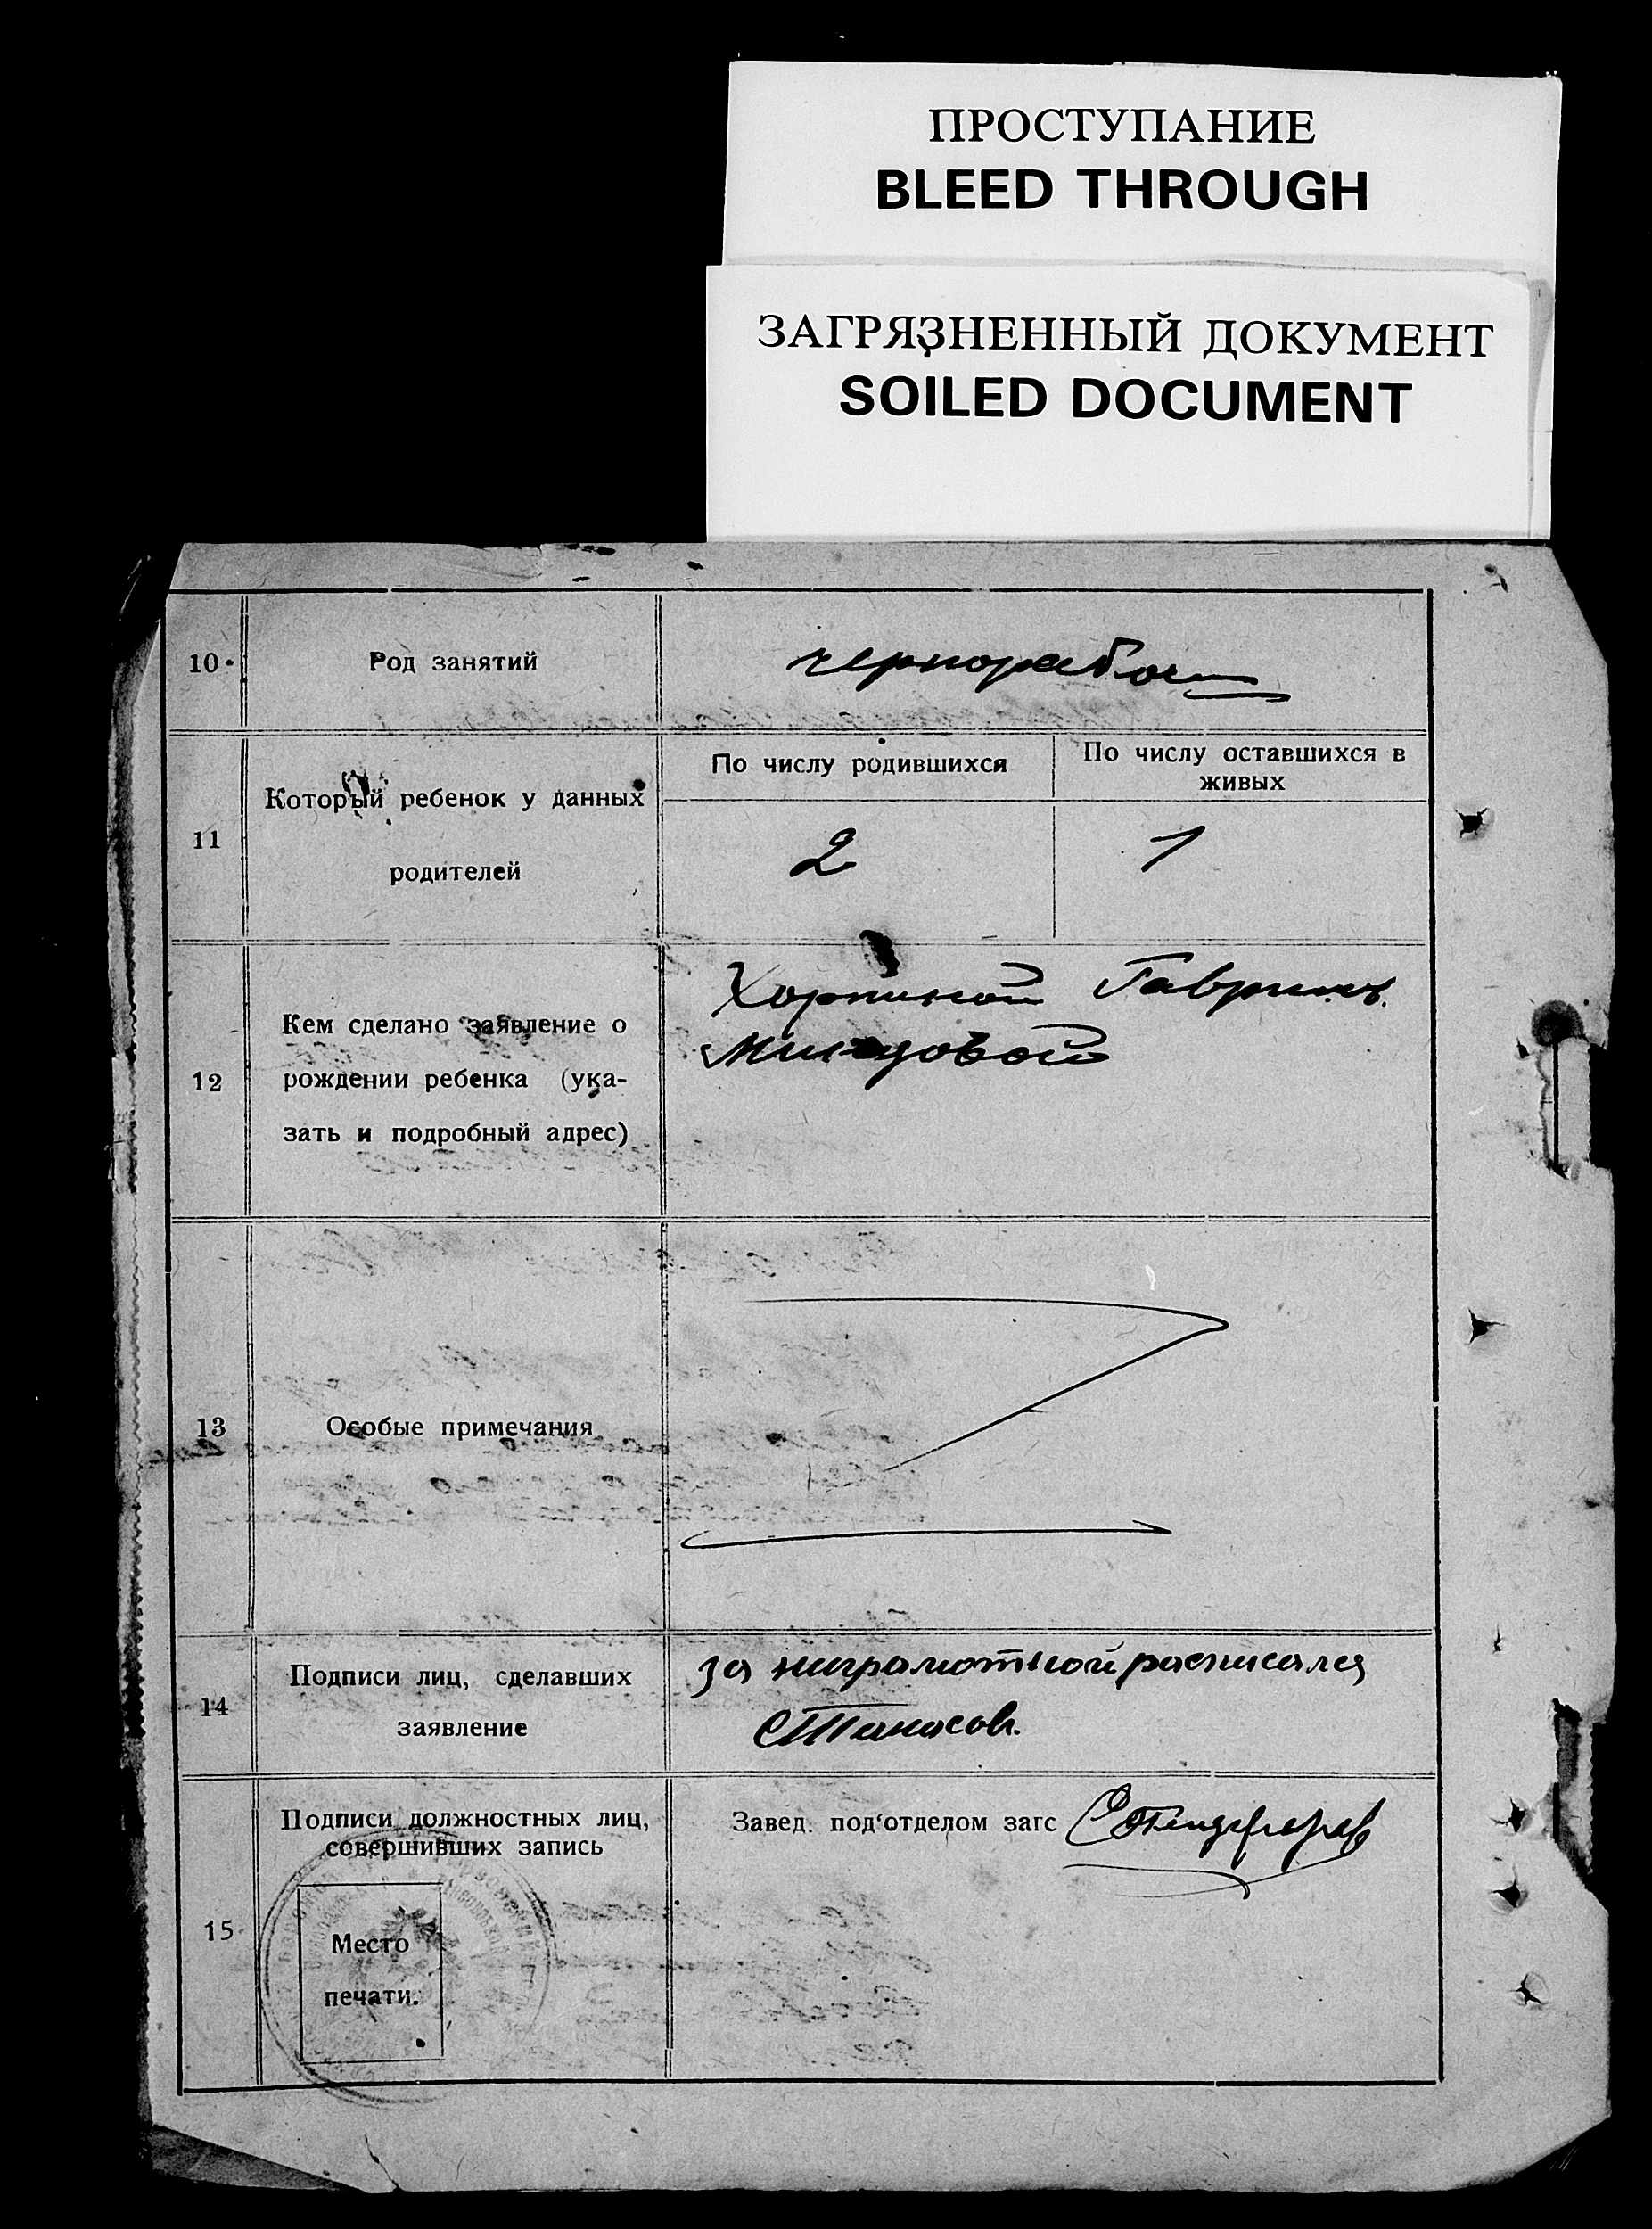 ПРОСТУПАНИЕ
BLEED THROUGH
ЗАГРЯЗНЕННЫЙ ДОКУМЕНТ
SOILED DOCUMENT
10
Род занятий
чернорабоч
11
Который ребенок у данных
родителей
По числу родившихся
По числу оставшихся в
живых
2
1
12
Кем сделано заявление о
рождении ребенка (ука-
зать и подробный адрес)
Хорпиной
13
Особые примечания
14
Подписи лиц, сделавших
заявление
за награмотной расписался
15
Подписи должностных лиц,
совершивших запись
Завед. под‘отделом загс
Место
печати.